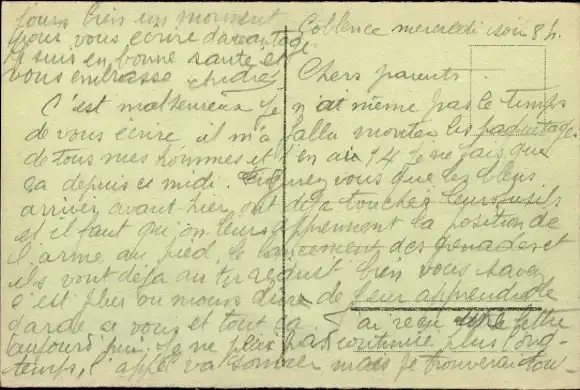 Coblence mercredi soir 8 h.
Chers parents
C'est malheureux je n'ai même pas le temps
de vous écrire il m'a fallu monter les paquetages
de tous mes hommes et j'en ai 14 je ne fais que
ça depuis ce midi. Figurez vous que les bleus
arrivés avant-hier ont déjà touché leurs fusils
et il faut qu'on leurs apprennent la position de
l'arme au pied, le lancement des grenades et
ils vont déjà au tir réduit bien vous savez
c'est plus ou moins dur de leur apprendre le
garde à vous et tout ça. J'ai reçu une lettre
aujourd'hui. Je ne peux pas continuer plus long-
temps, l'appel va sonner mais je trouverai tou-
jours bien un moment
pour vous écrire davantage
Je suis en bonne santé et
vous embrasse André